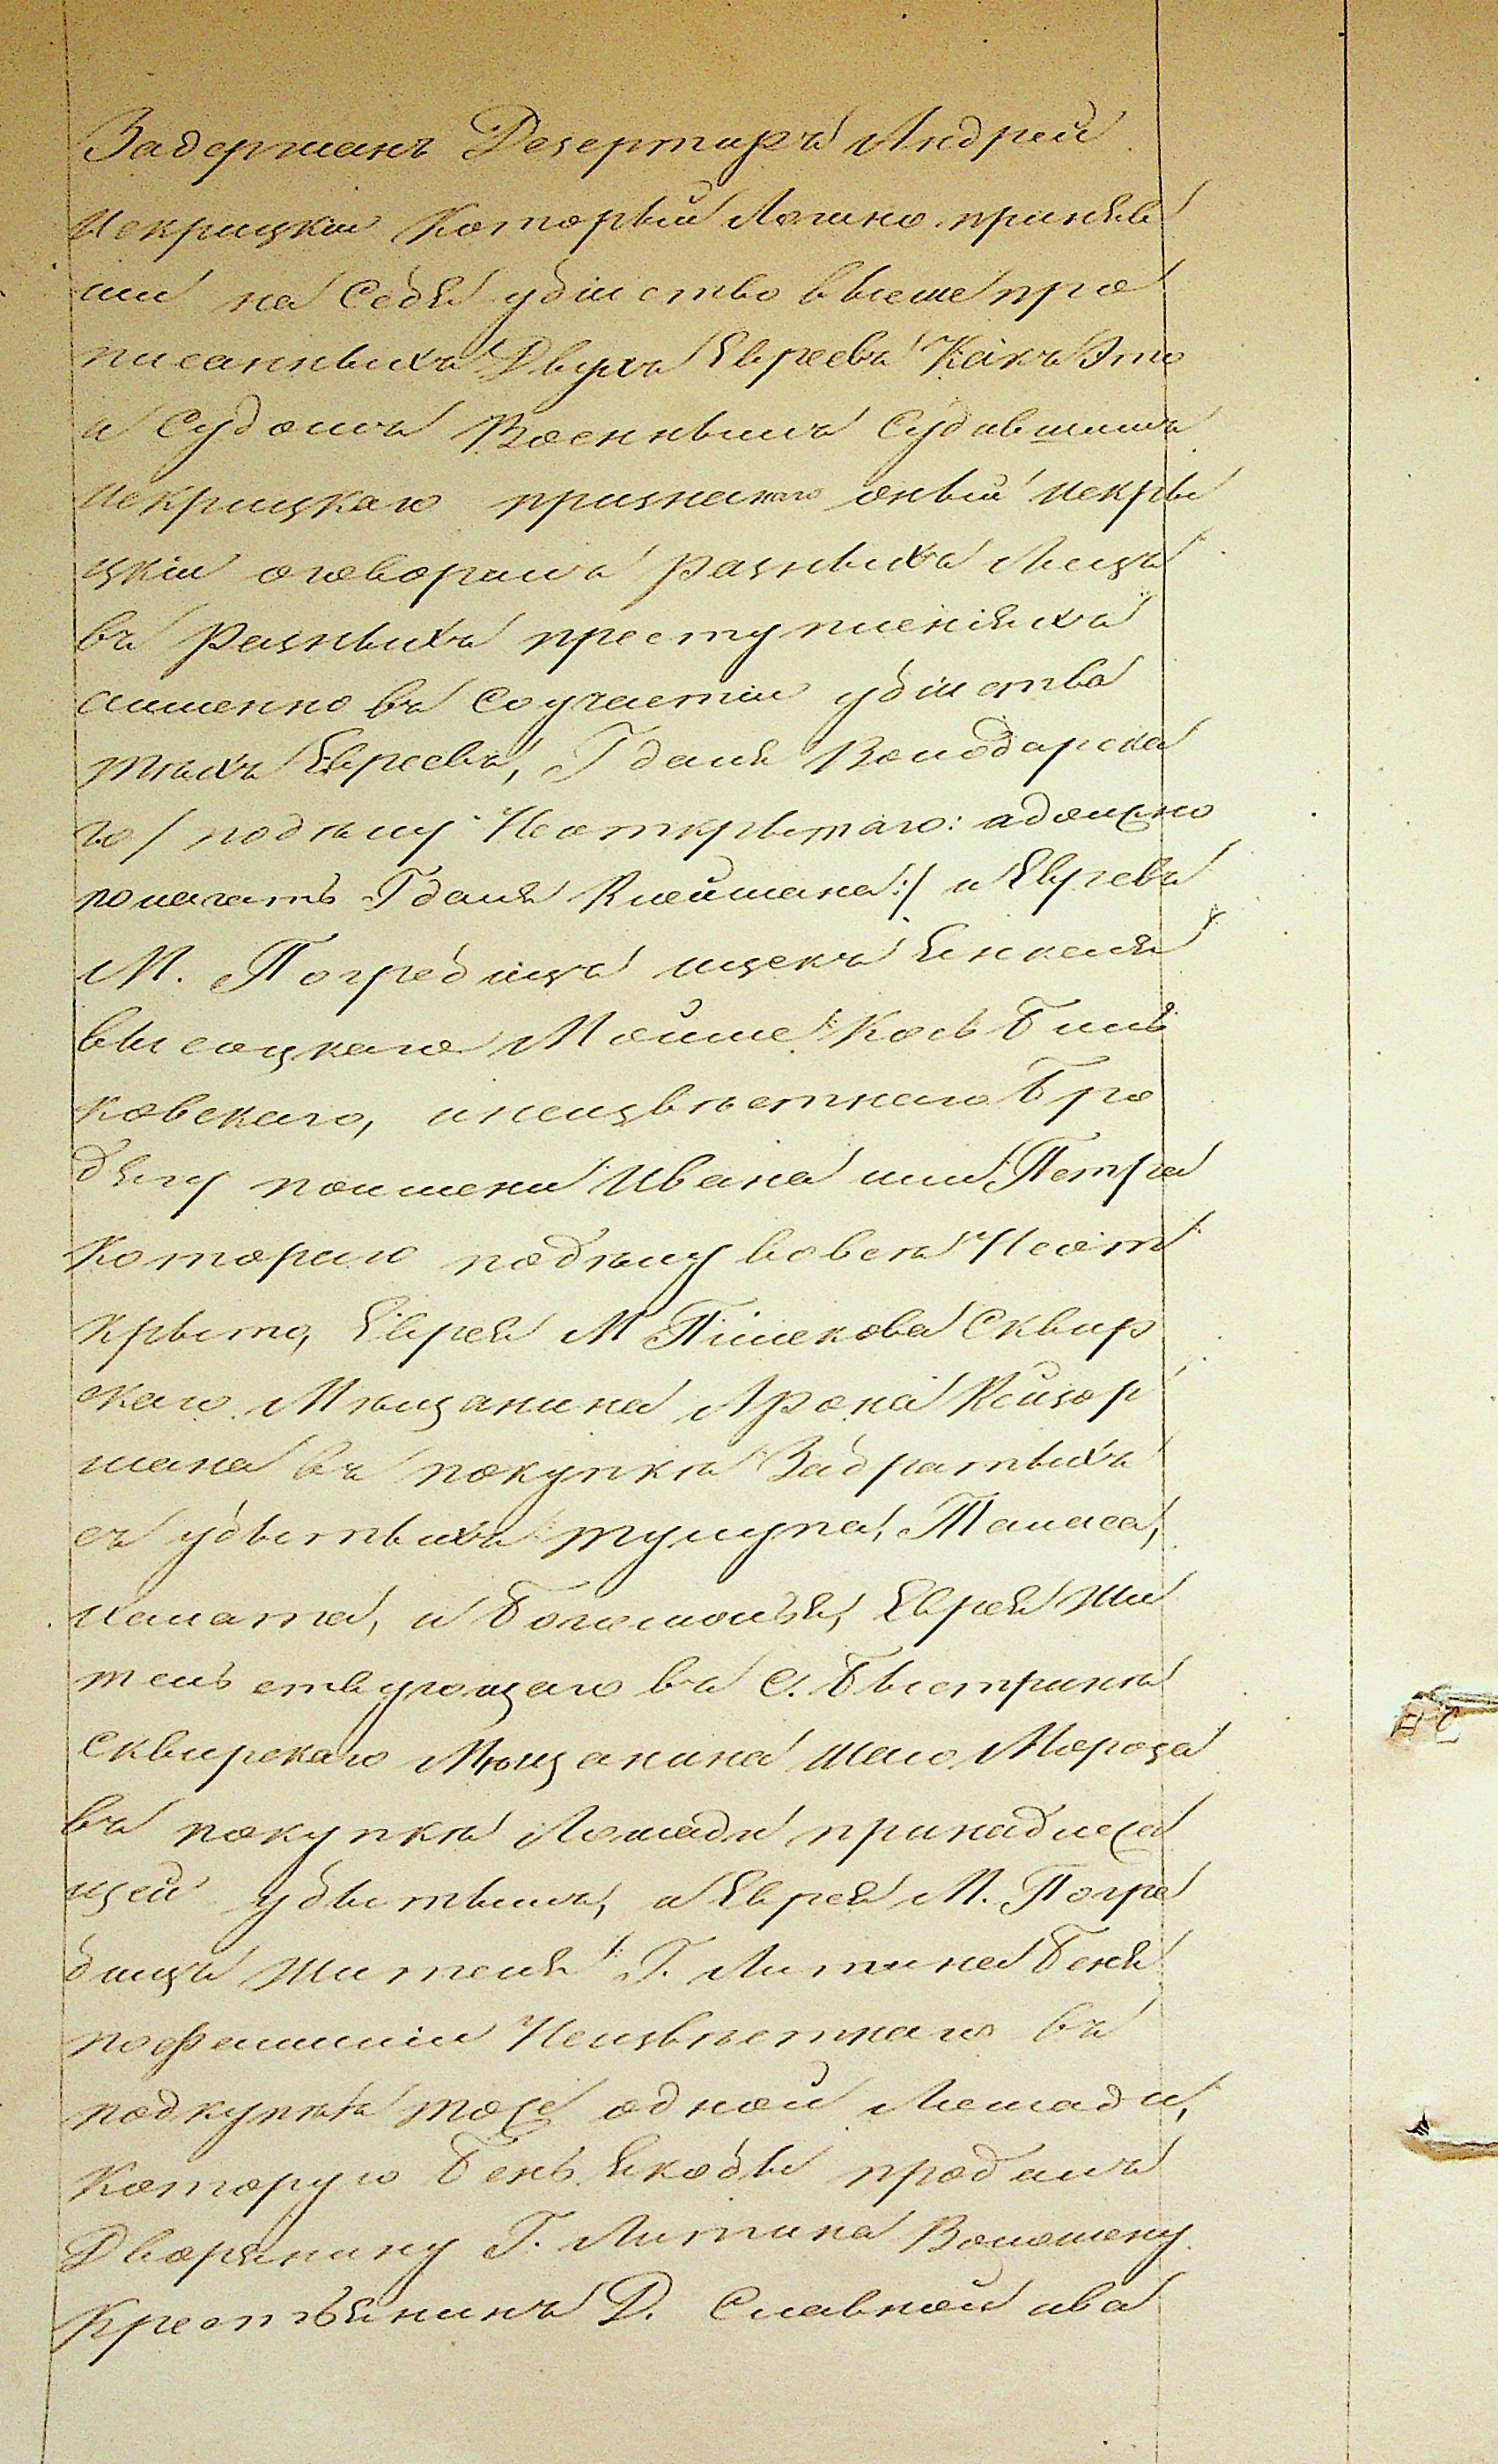 Задержанъ Дезертиръ Андрей
Искрицкій Который Лочино принявъ
ши на Себя убіиство вышепро
писанныхъ Двухъ Евреевъ Какъ Это
и Судомъ Военнымъ Судившимъ
Искрицкаго признано оный Искры
цкіи оговорилъ разныхъ Лицъ
въ разныхъ преступленіяхъ
аименно въ Соучастіи убіиства
тѣхъ Евреевъ, Гдаля Володарска
го / подѣлу Неоткрытаго: адолжно
полагать Гдаля Клеймана :/ и Евреевъ
М. Погребищъ ицекъ Янкеля
высоцкаго Мойше Кось Биль
ковскаго, инеизвѣстнаго Бро
дягу поимени Ивана или Петра
Которыю подѣлу вовсе Неот
крыто, Еврея М Пішекова Сквир
скаго Мѣщанина Арона Кейзор
мана въ покупкѣ Забратыхъ
съ убытыхъ тулупа, Талиса,
халата, и Богомолья, Еврея Жи
тельствующаго въ С. Быстрикѣ
Сквирскаго Мѣщанина Шаю Мороза
въ покупкѣ Лошади принадлежа
щей убытымъ, и Еврея М. Погре
бищъ Жителя Г. Литина Беня
пофамиліи Неизвѣстнаго въ
подкупкѣ тоже одной Лошади,
Которую Бень Якобы продалъ
Дворянину Г. Литина Волошину
Крестьянинъ Д. Славной ива